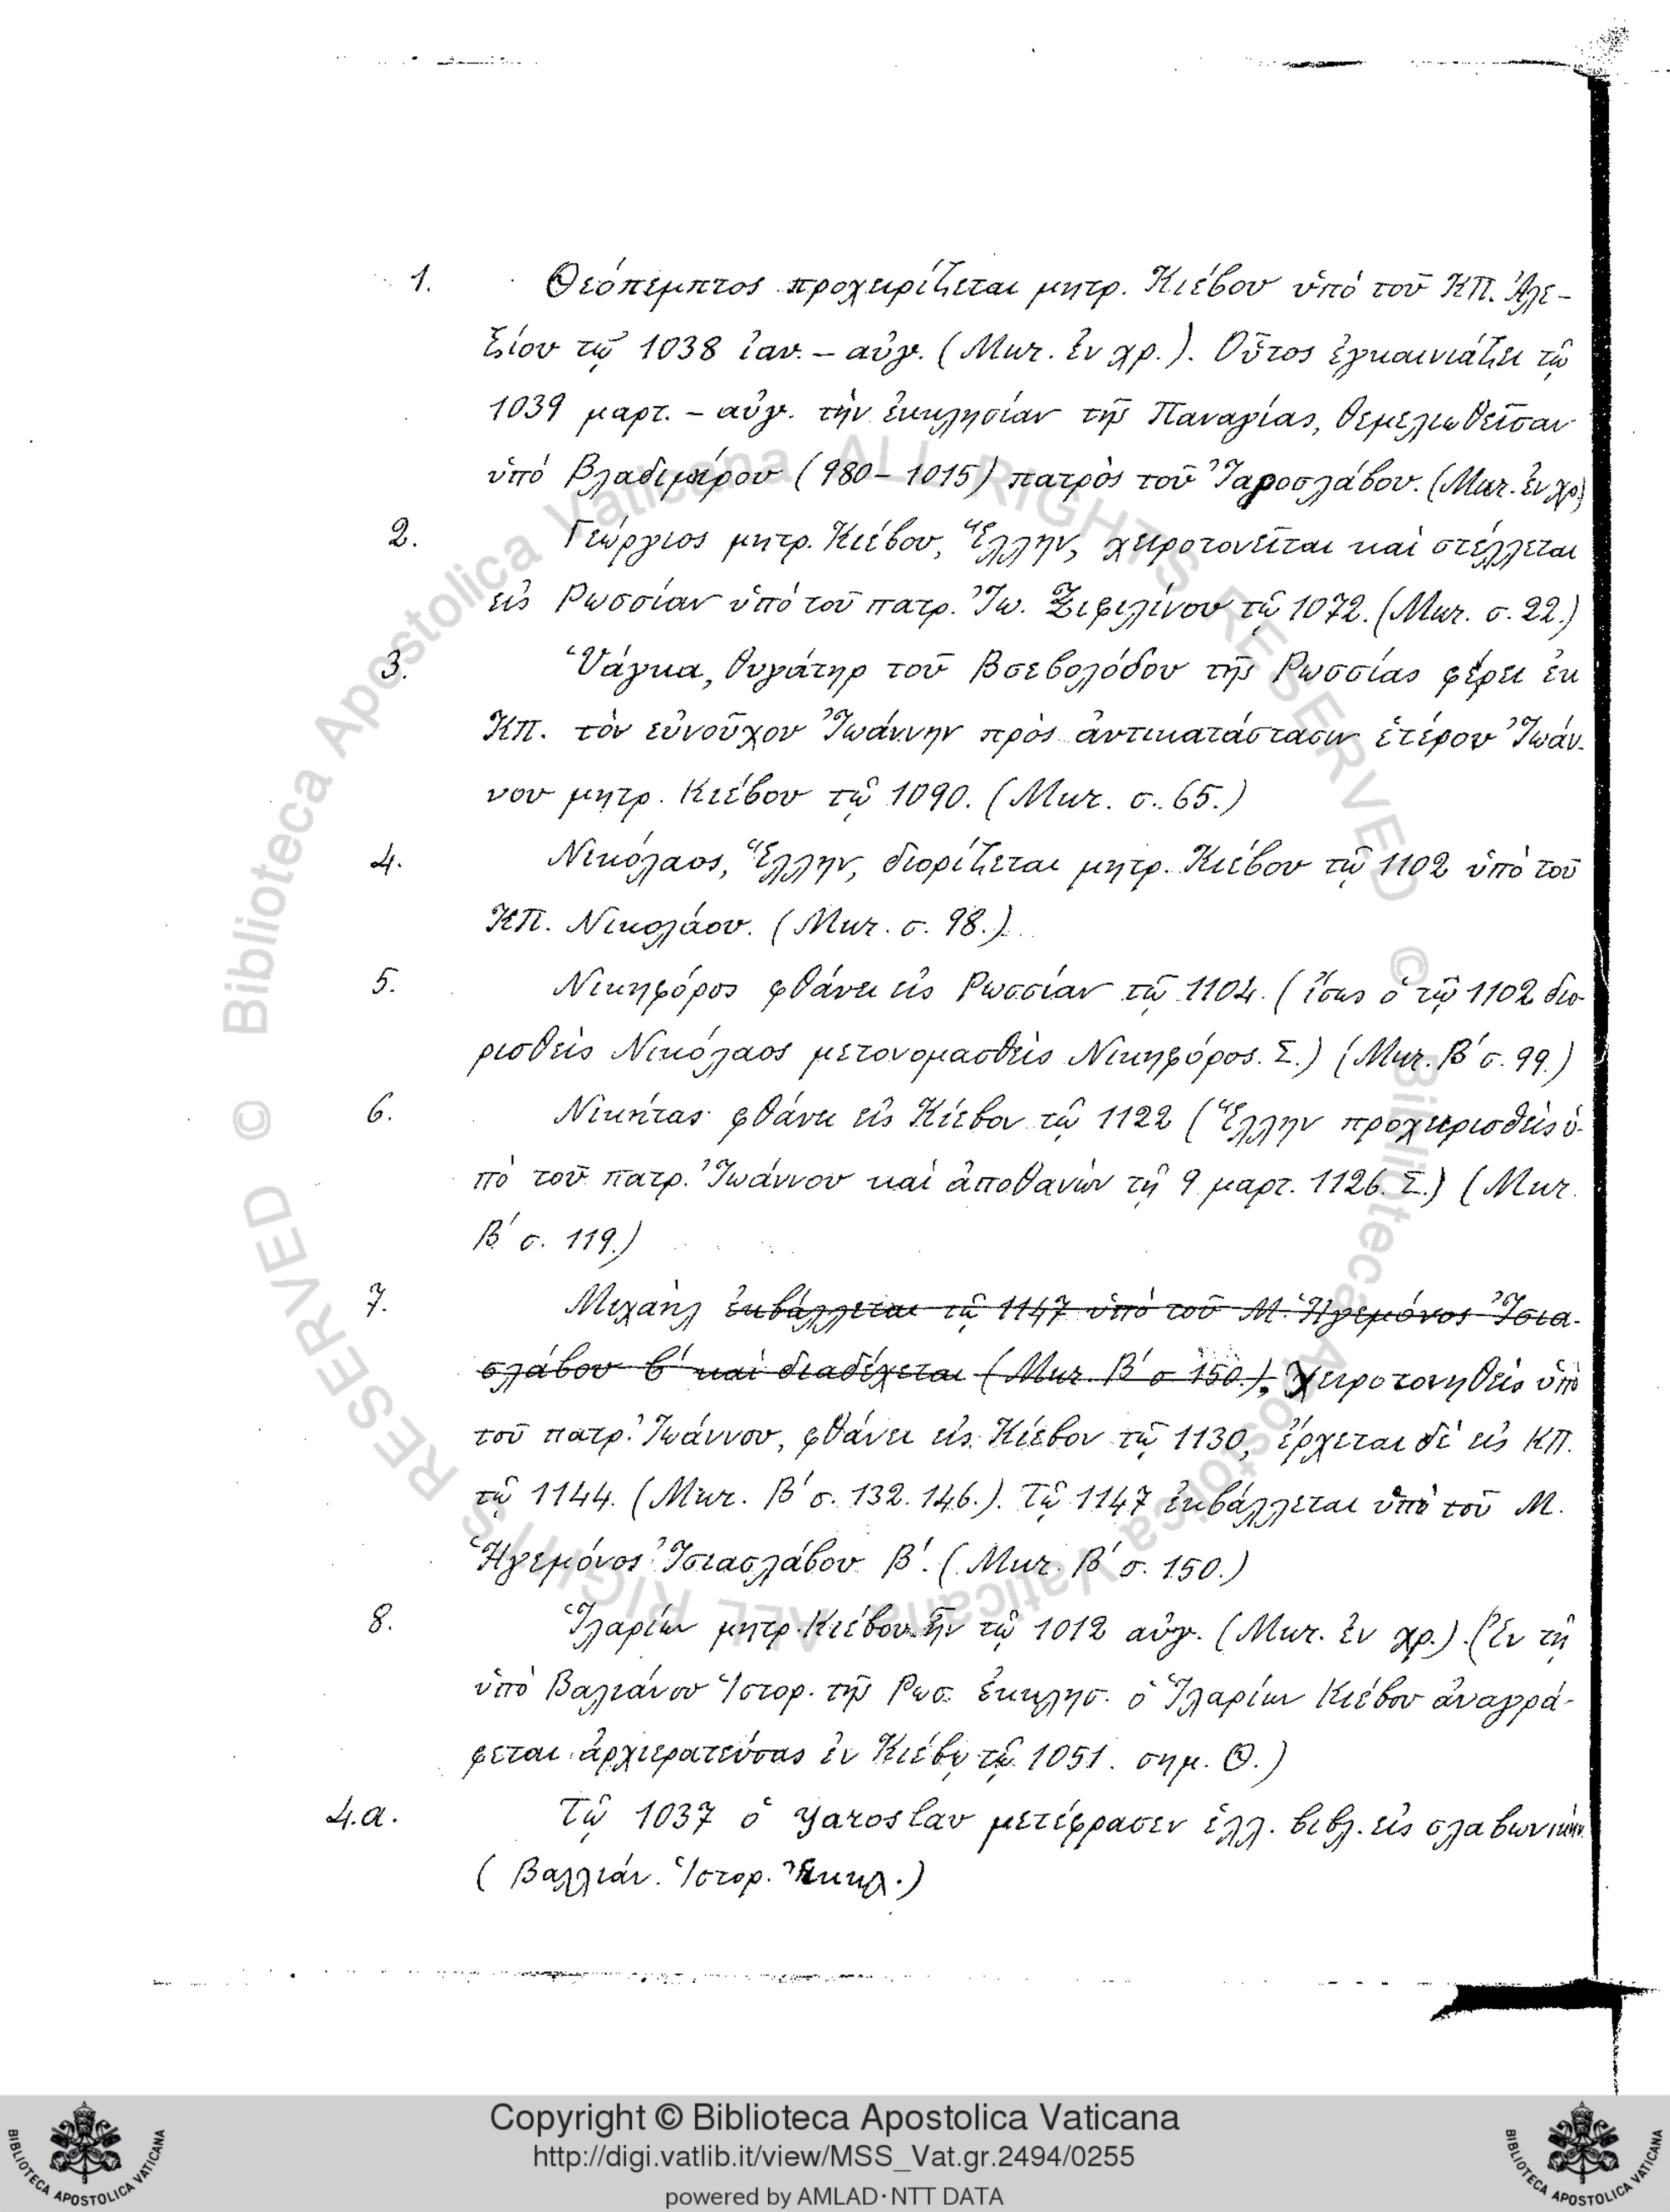 1. Θεόπεμπτος προχειρίζεται μητρ. Κιέβου ὑπὸ τοῦ ΚΠ. Ἀλε-
ξίου τῷ 1038 ἰαν. – αὐγ. (Μuτ. ἐν χρ.). Οὗτος ἐγκαινιάζει τῷ
1039 μαρτ. – αὐγ. τὴν ἐκκλησίαν τῆς Παναγίας, θεμελιωθεῖσαν
ὑπὸ Βλαδιμήρου (980 – 1015) πατρὸς τοῦ Ἰαροσλάβου. (Μuτ. ἐν χρ.)
2. Γεώργιος μητρ. Κιέβου, Ἕλλην, χειροτονεῖται καὶ στέλλεται
εἰς Ρωσσίαν ὑπὸ τοῦ πατρ. Ἰω. Ξιφιλίνου τῷ 1072. (Μuτ. σ. 22.)
3. Ὑάγκα, θυγάτηρ τοῦ Βσεβολόδου τῆς Ρωσσίας φέρει ἐκ
ΚΠ. τὸν εὐνοῦχον Ἰωάννην πρὸς ἀντικατάστασιν ἑτέρου Ἰωάν-
νου μητρ. Κιέβου τῷ 1090. (Μuτ. σ. 65.)
4. Νικόλαος, Ἕλλην, διορίζεται μητρ. Κιέβου τῷ 1102 ὑπὸ τοῦ
ΚΠ. Νικολάου. (Μuτ. σ. 98.)
5. Νικηφόρος φθάνει εἰς Ρωσσίαν τῷ 1104. (ἴσως ὁ τῷ 1102 διο-
ρισθεὶς Νικόλαος μετονομασθεὶς Νικηφόρος. Σ.) (Μuτ. Β´ σ. 99.)
6. Νικήτας φθάνει εἰς Κίεβον τῷ 1122 (Ἕλλην προχειρισθεὶς ὑ-
πὸ τοῦ πατρ. Ἰωάννου καὶ ἀποθανὼν τῇ 9 μαρτ. 1126. Σ.) (Μuτ.
Β´ σ. 119.)
7. Μιχαὴλ ἐκβάλλεται τῷ 1147 ὑπὸ τοῦ Μ. Ἡγεμόνος Ἰσια-
σλάβου β´ καὶ διαδέχεται (Μuτ. Β´ σ 150.), χειροτονηθεὶς ὑπὸ
τοῦ πατρ. Ἰωάννου, φθάνει εἰς Κίεβον τῷ 1130, ἔρχεται δὲ εἰς ΚΠ.
τῷ 1144. (Μuτ. Β´ σ. 132. 146.). Τῷ 1147 ἐκβάλλεται ὑπὸ τοῦ Μ.
Ἡγεμόνος Ἰσιασλάβου Β´. (Μuτ. Β´ σ. 150.)
8. Ἱλαρίων μητρ. Κιέβου ἦν τῷ 1012 αὐγ. (Μuτ. ἐν χρ.). (Ἐν τῇ
ὑπὸ Βαλιάνου Ἱστορ. τῆς Ρωσ. ἐκκλησ. ὁ Ἱλαρίων Κιέβου ἀναγρά-
φεται ἀρχιερατεύσας ἐν Κιέβῳ τῷ 1051. σημ. Θ.)
4.α. Τῷ 1037 ὁ Yaroslav μετέφρασεν ἑλλ. βιβλ. εἰς σλαβωνικήν.
(Βαλλιάν. Ἱστορ. Ἐκκλ.)
© Biblioteca Apostolica Vaticana ALL RIGHTS RESERVED
© Biblioteca Apostolica Vaticana ALL RIGHTS RESERVED
Copyright © Biblioteca Apostolica Vaticana
http://digi.vatlib.it/view/MSS_Vat.gr.2494/0255
powered by AMLAD·NTT DATA
BIBLIOTECA APOSTOLICA VATICANA
BIBLIOTECA APOSTOLICA VATICANA